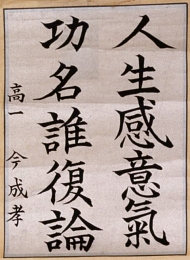 人生感意氣
功名誰復論
高一 今成孝